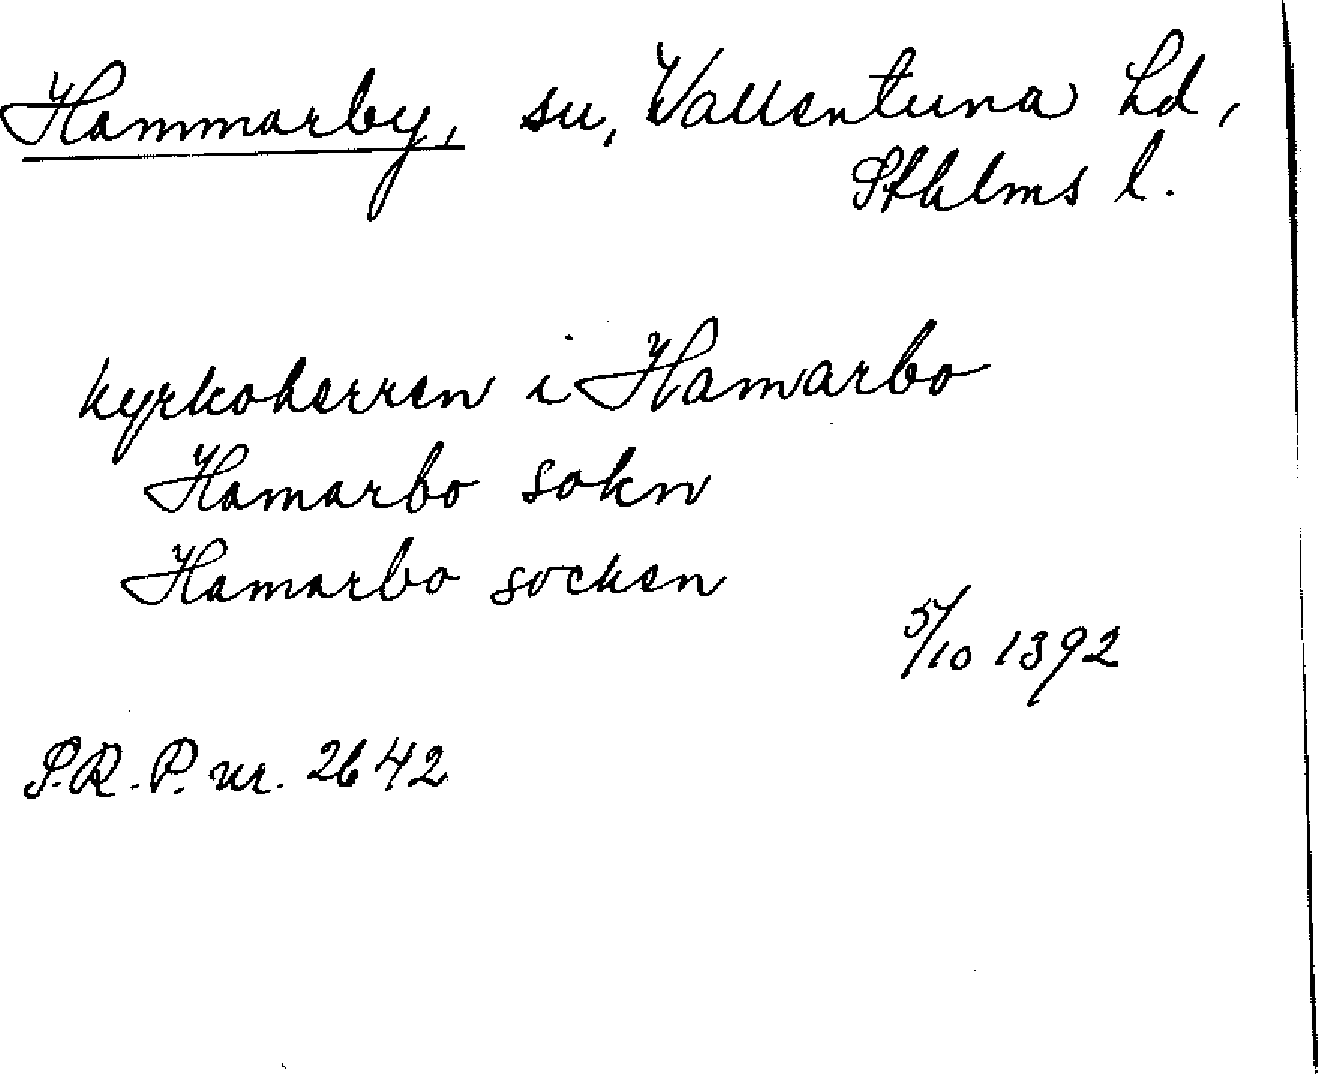 Hammarby, sn, Vallentuna hd,
Sthlms l.
kyrkoherren i Hamarbo
Hamarbo sokn
Hamarbo socken
5/10 1392
S.R.P. nr. 2642